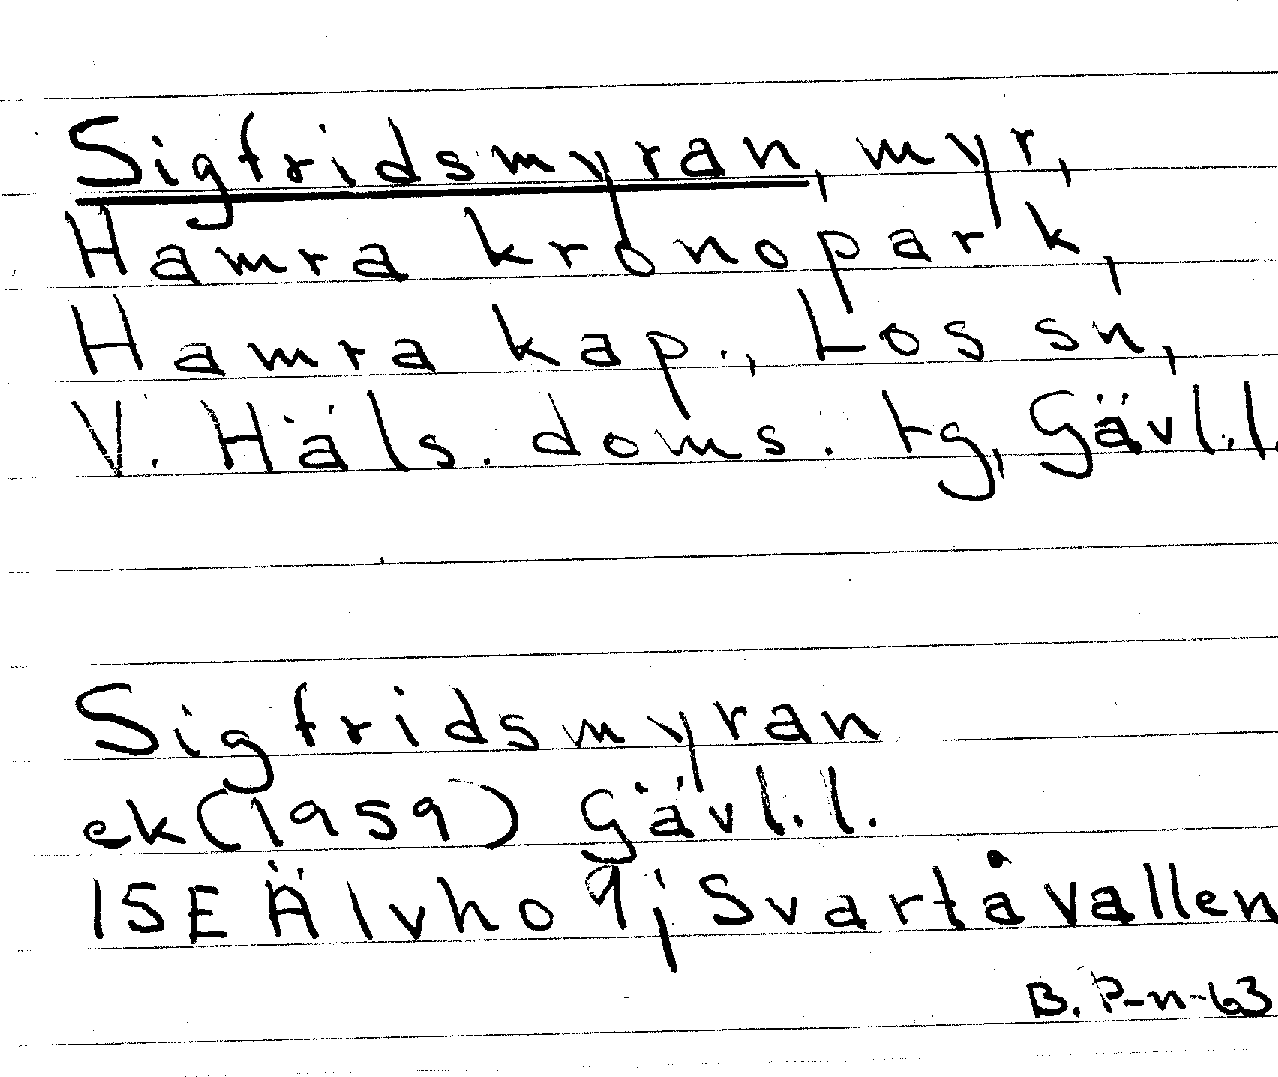 Sigfridsmyran, myr,
Hamra kronopark,
Hamra kap., Los sn,
V. Häls. doms. tg, Gävl.l.
Sigfridsmyran
ek(1959) Gävl.l.
15E Älvho 9j Svartåvallen
B. P-n-63